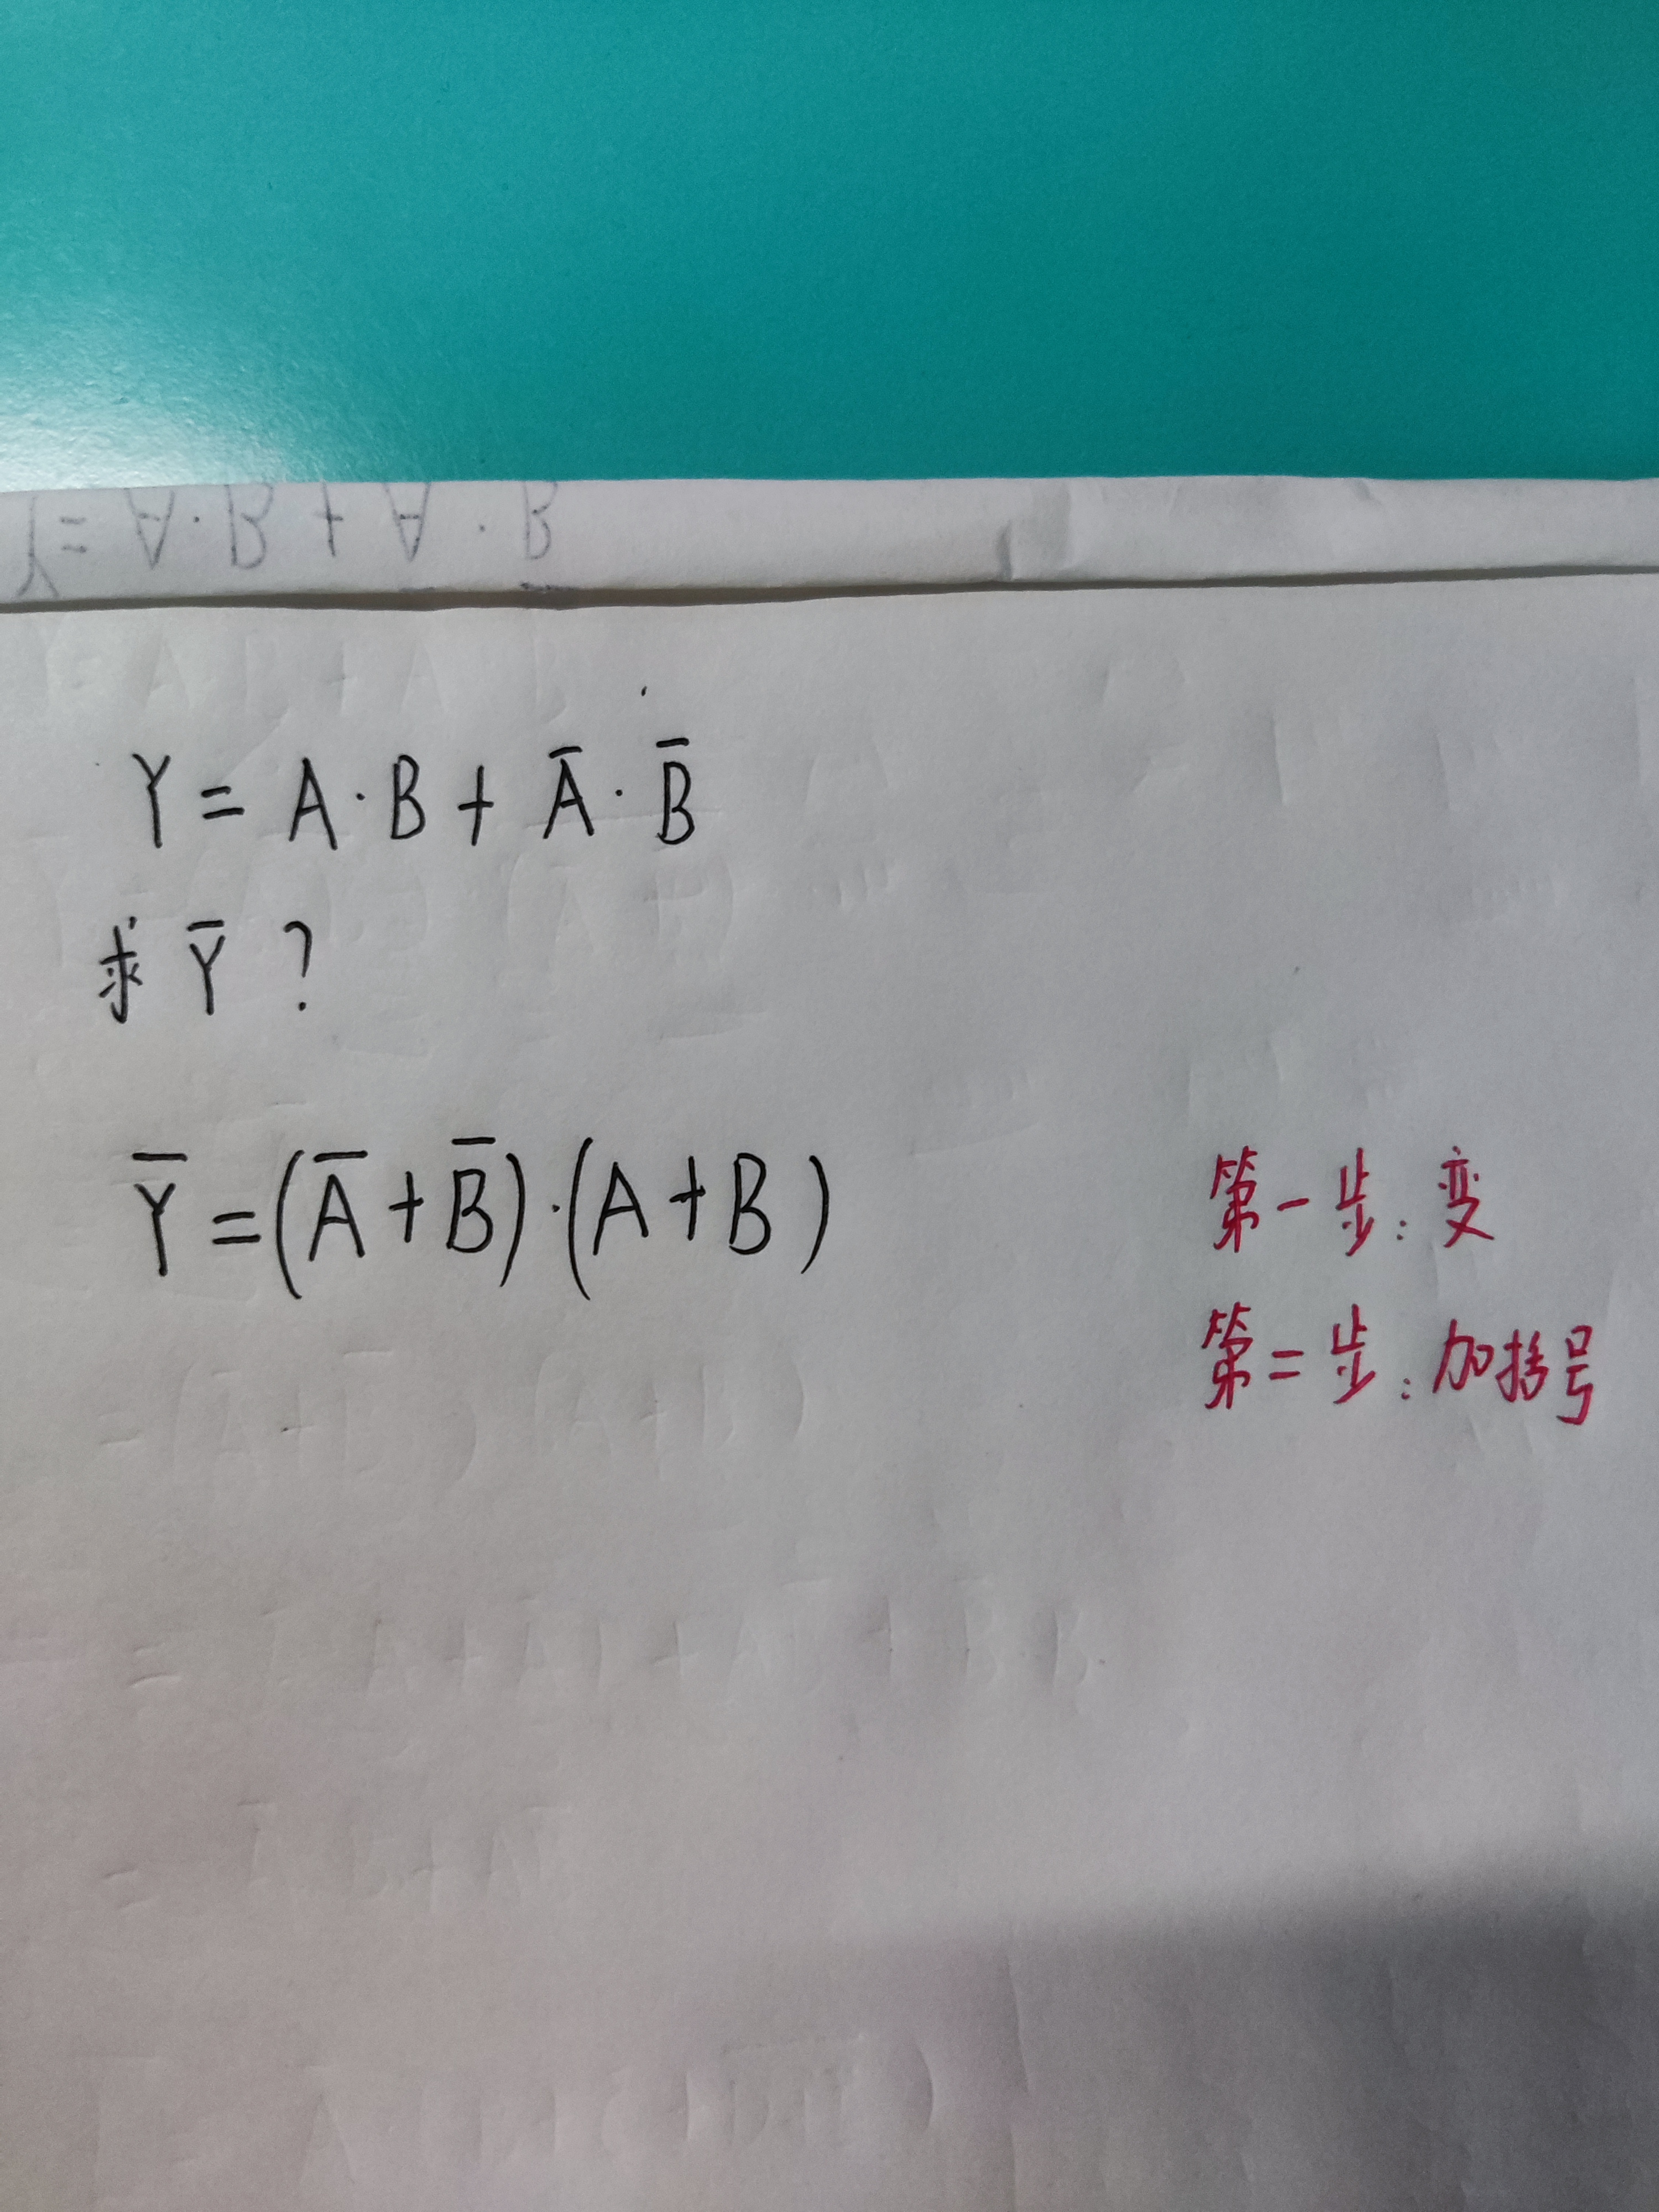 Y = A·B + A · B
Y = A·B + A̅ · B̅
求 Y̅ ?
Y̅ = (A̅ + B̅)·(A + B)
第一步: 变
第二步: 加括号